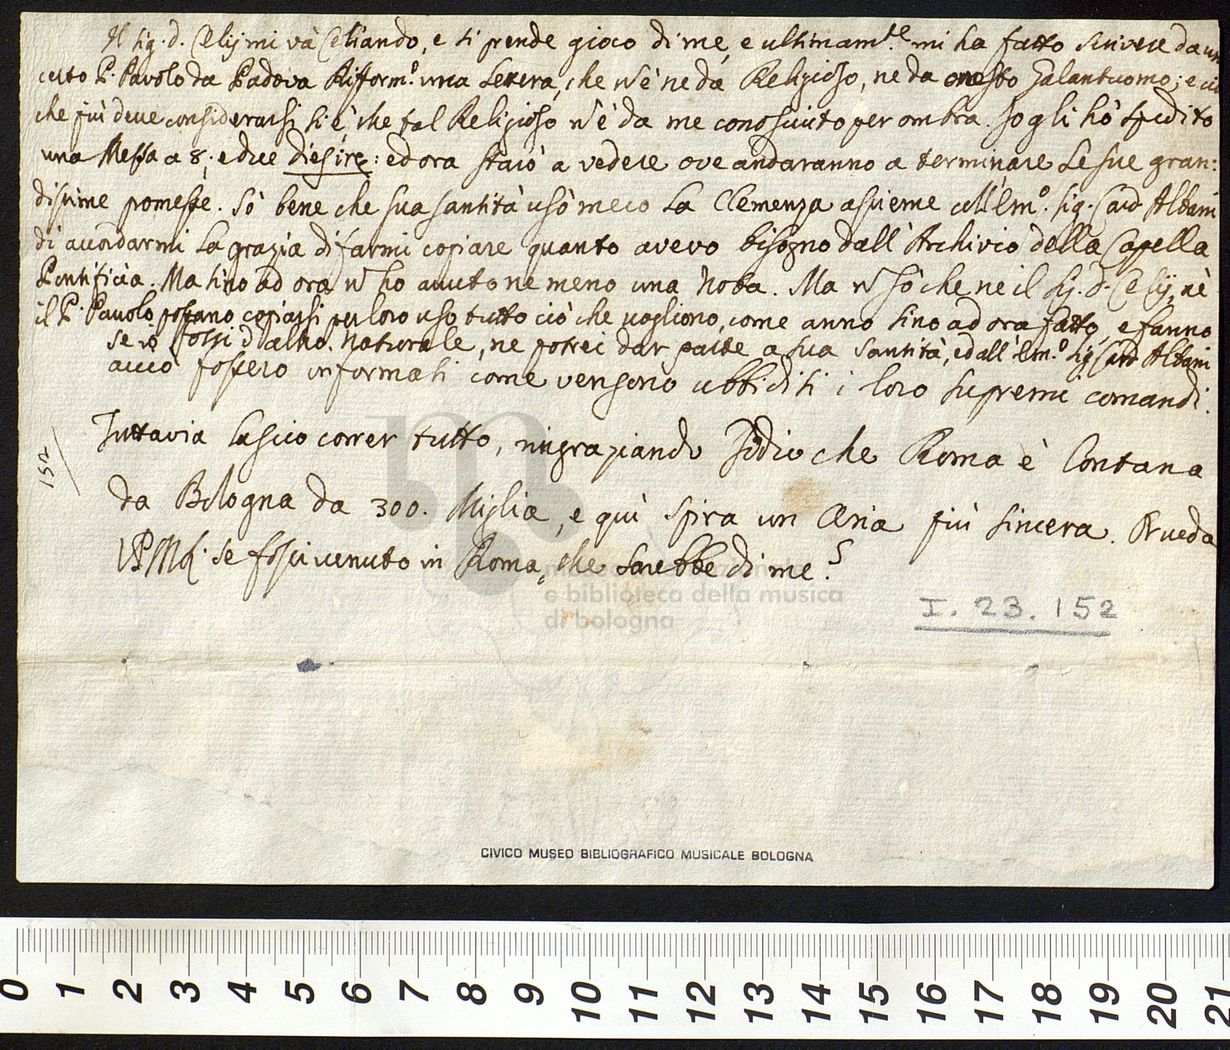 Il sig. d. Celij mi và Celiando, e si prende gioco di me, e ultimam.te mi ha fatto scrivere da un
certo P. Pavolo da Padova Rifform.o una Lettera, che n'è ne da Religioso, ne da onesto galantuomo; e ciò
che più deve considerarsi si è, che tal Religioso n'è da me conosciuto per ombra. Io gli hò spedito
una Messa a 8. e due diesire: ed ora starò a vedere ove andaranno a terminare le sue gran:
dissime promesse. Sò bene che sua santità usò meco la Clemenza assieme coll'Em.o sig. Card Albani
di accordarmi la grazia di farmi copiare quanto avevo bisogno dall'Archivio della Capella
Pontificia. Ma sino ad ora n ho avuto ne meno una Nota. Ma n sò che ne il sig. d. Celij, nè
il P. Pavolo possano copiarsi per loro uso tutto ciò che vogliono, come anno sino ad ora fatto, e fanno
se io fossi d'altro naturale, ne potrei dar parte a sua santità, ed all'Em.o sig Card Albani
acciò fossero informati come vengono ubbiditi i loro supremi comandi.
Tuttavia lascio correr tutto, ringraziando Iddio che Roma è lontana
da Bologna da 300. Miglia, e quì spira un Aria più sincera. Prveda
VPMR se fossi venuto in Roma, che sarebbe di me?
152
I. 23. 152
museo internazionale
e biblioteca della musica
di bologna
CIVICO MUSEO BIBLIOGRAFICO MUSICALE BOLOGNA
0 1 2 3 4 5 6 7 8 9 10 11 12 13 14 15 16 17 18 19 20 21